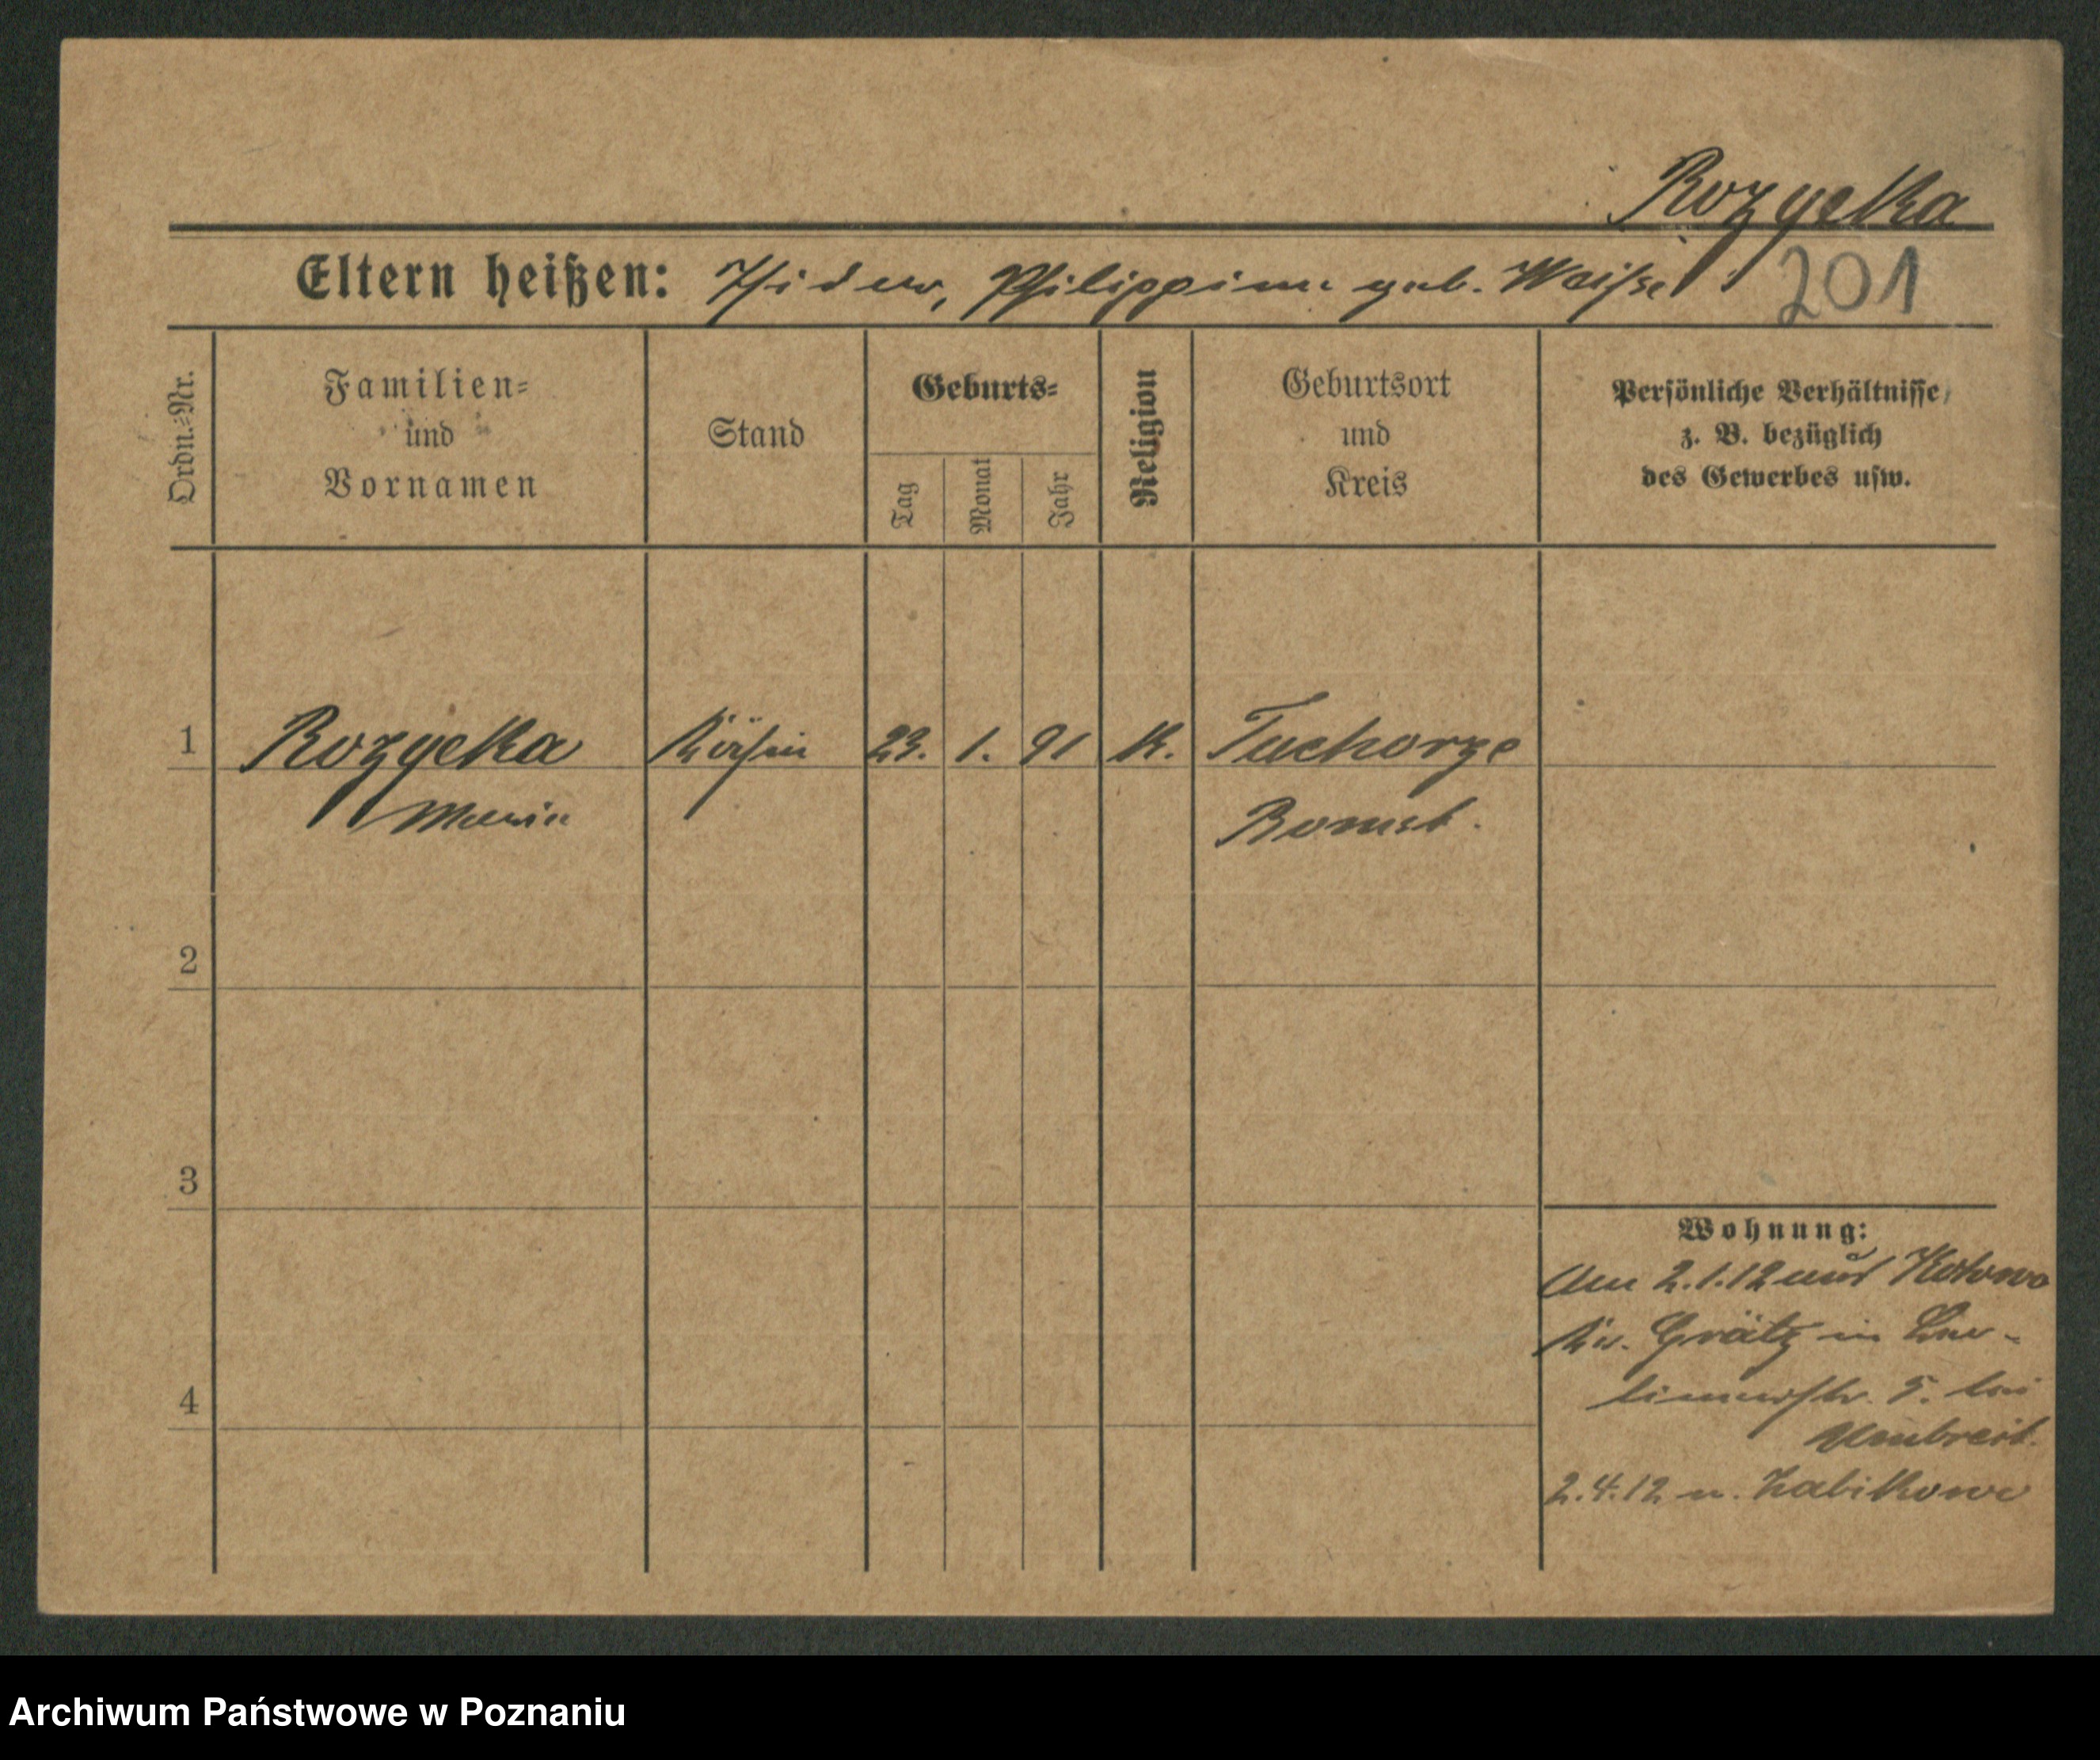 Rozycka
Eltern heißen: Isidor, Philippine geb. Weisse
201
Ordn.-Nr.
Familien-
und
Vornamen
Stand
Geburts-
Tag
Monat
Jahr
Religion
Geburtsort
und
Kreis
Persönliche Verhältnisse,
z. B. bezüglich
des Gewerbes usw.
1 Rozycka Köchin 23. 1. 91 K. Tuchorze
Maria Bomst.
2
3
4
Wohnung:
Am 2.1.12 aus Kotowo
Kr. Grätz in
5. bei
Umbreit.
2.4.12 n. Zabikowo
Archiwum Państwowe w Poznaniu